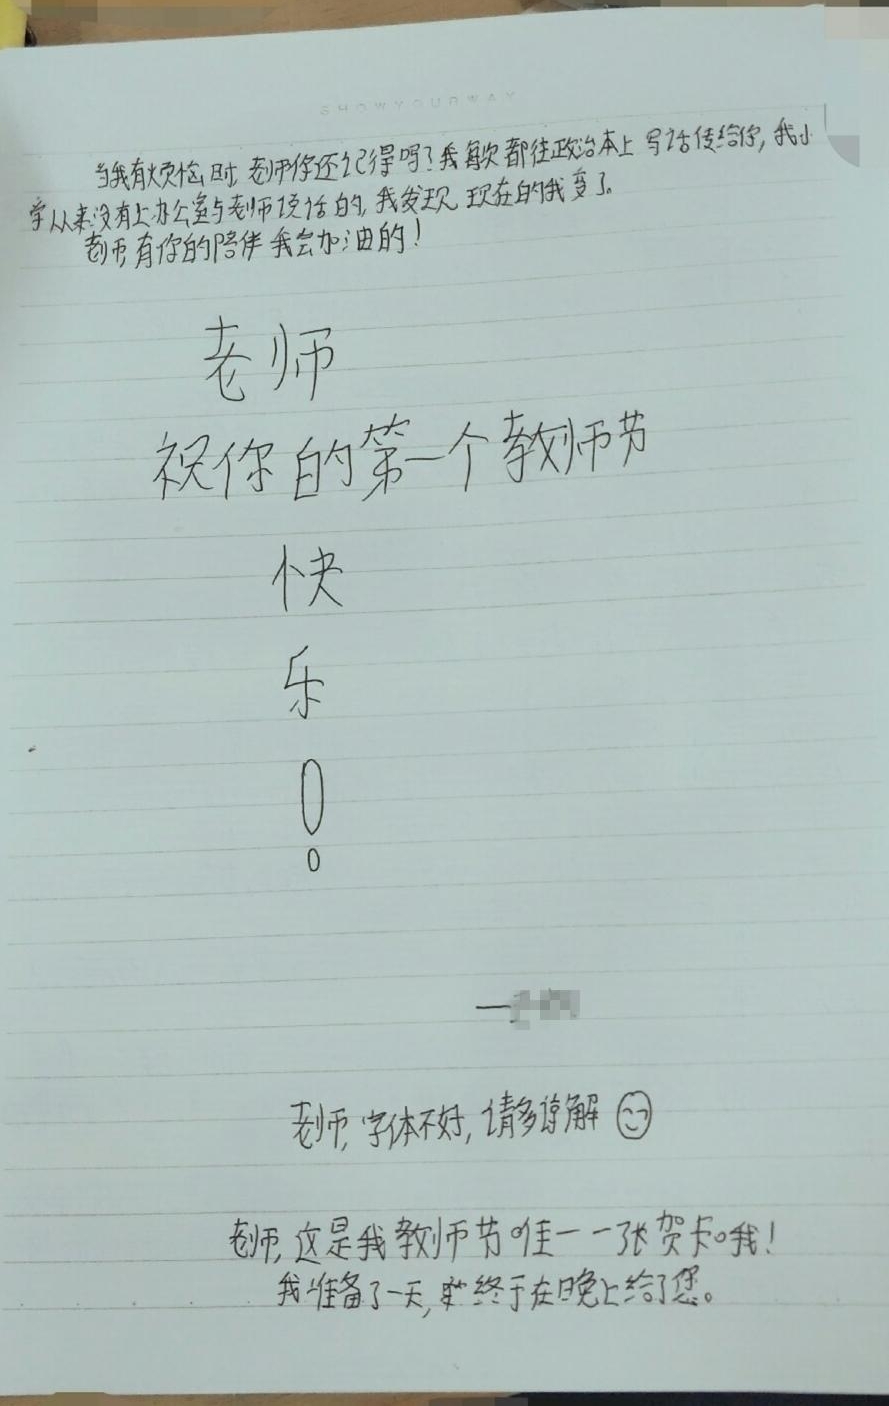 SHOWYOURWAY
当我有烦恼时,老师你还记得吗?我每次都往政治本上写话传给你,我小
学从来没有上办公室与老师谈话的,我发现现在的我变了。
老师,有你的陪伴我会加油的!
老师
祝你的第一个教师节
快
乐
!
老师,字体不好,请多谅解
老师,这是我教师节唯一一张贺卡哦!
我准备了一天,终于在晚上给了您。